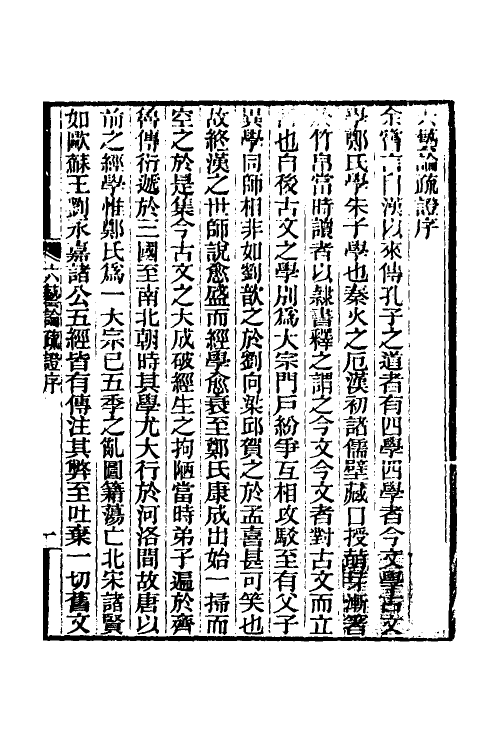 六藝論疏證序
余嘗言自漢以來傳孔子之道者有四學四學者今文學古文
學鄭氏學朱子學也秦火之厄漢初諸儒壁藏口授萌芽漸箸
於竹帛當時讀者以隸書釋之謂之今文今文者對古文而立
名也自後古文之學別爲大宗門戶紛爭互相攻駁至有父子
異學同師相非如劉歆之於劉向梁邱賀之於孟喜甚可笑也
故終漢之世師說愈盛而經學愈衰至鄭氏康成出始一掃而
空之於是集今古文之大成破經生之拘陋當時弟子遍於齊
魯傳衍遞於三國至南北朝時其學尤大行於河洛間故唐以
前之經學惟鄭氏爲一大宗已五季之亂圖籍蕩亡北宋諸賢
如歐蘇王劉永嘉諸公五經皆有傳注其弊至吐棄一切舊文
六藝論疏證序
一